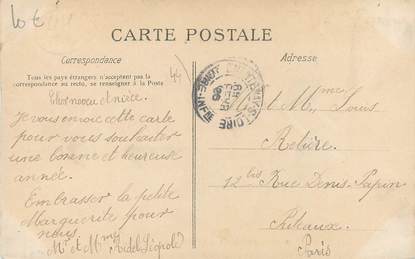 10 €
CARTE POSTALE
Correspondance
Adresse
Tous les pays étrangers n'acceptent pas la
correspondance au recto, se renseigner à la Poste
44
Cher neveu et nièce.
Je vous envoie cette carte
pour vous souhaiter
une bonne et heureuse
année.
Embrasser la petite
Marguerite pour
nous.
Mr et Mme Ridel Léopold
M. Mme Louis
Retière
12bis Rue Denis-Papin
Puteaux
Paris
LOIRE-INFRE